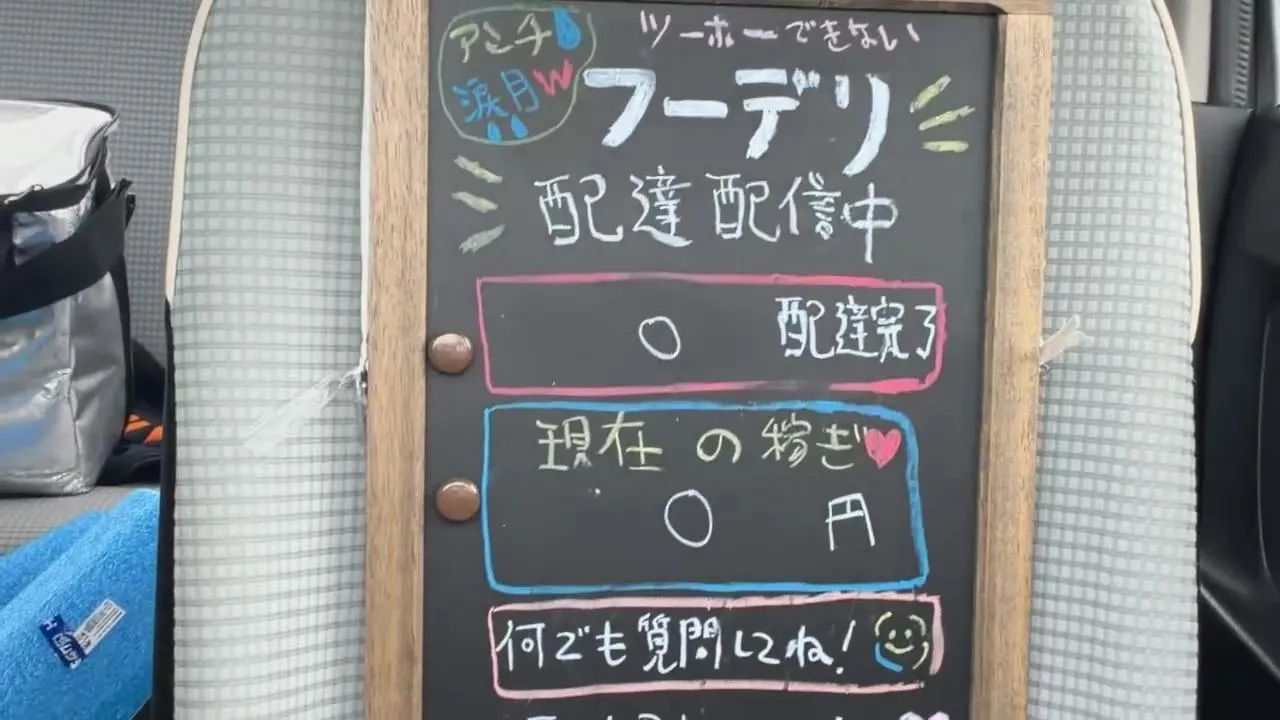 アンチ
涙月w
ツーホーできない
フーデリ
配達配信中
0 配達完了
現在の稼ぎ
0 円
何でも質問してね！